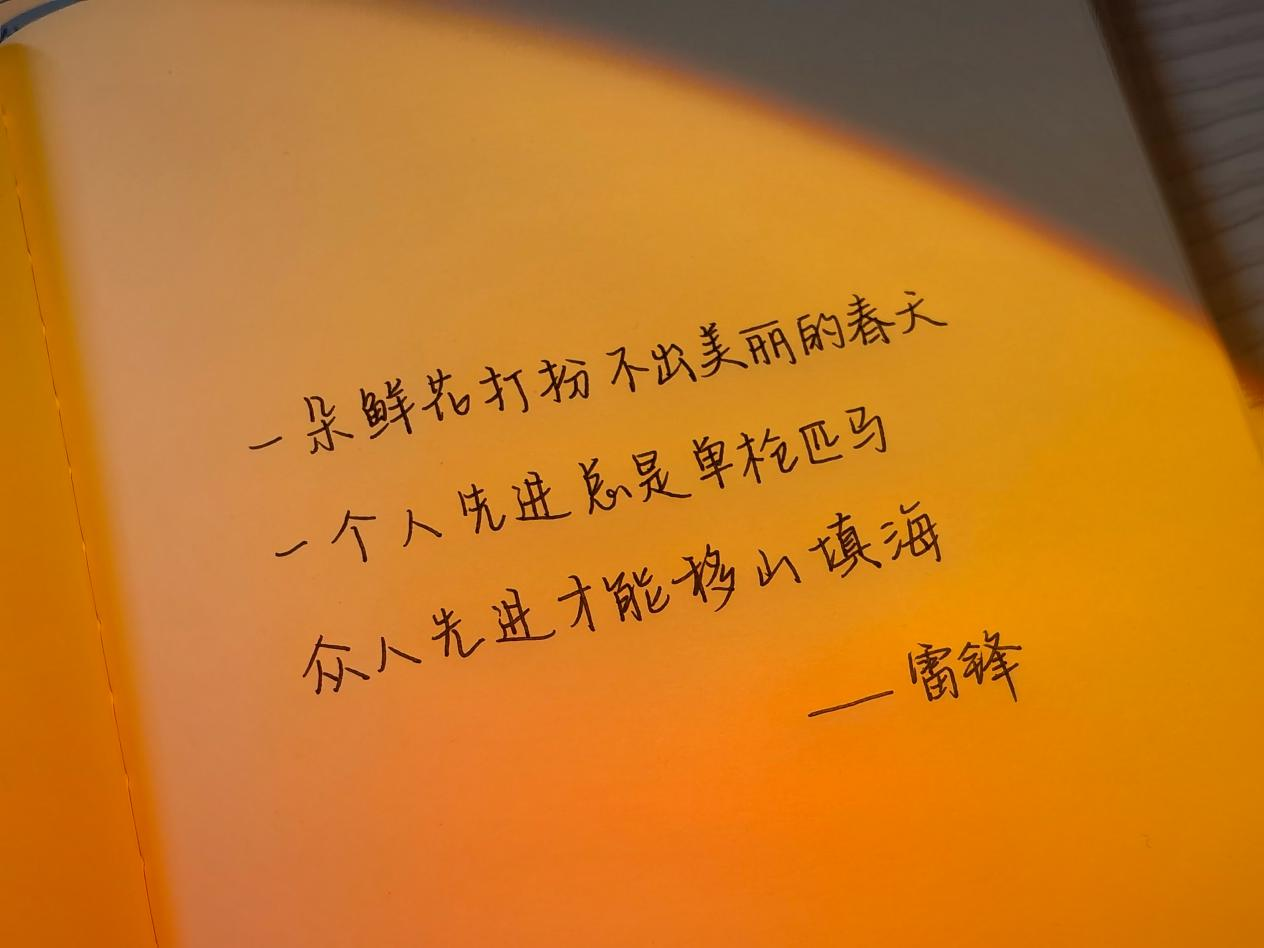 一朵鲜花打扮不出美丽的春天
一个人先进总是单枪匹马
众人先进才能移山填海
——雷锋